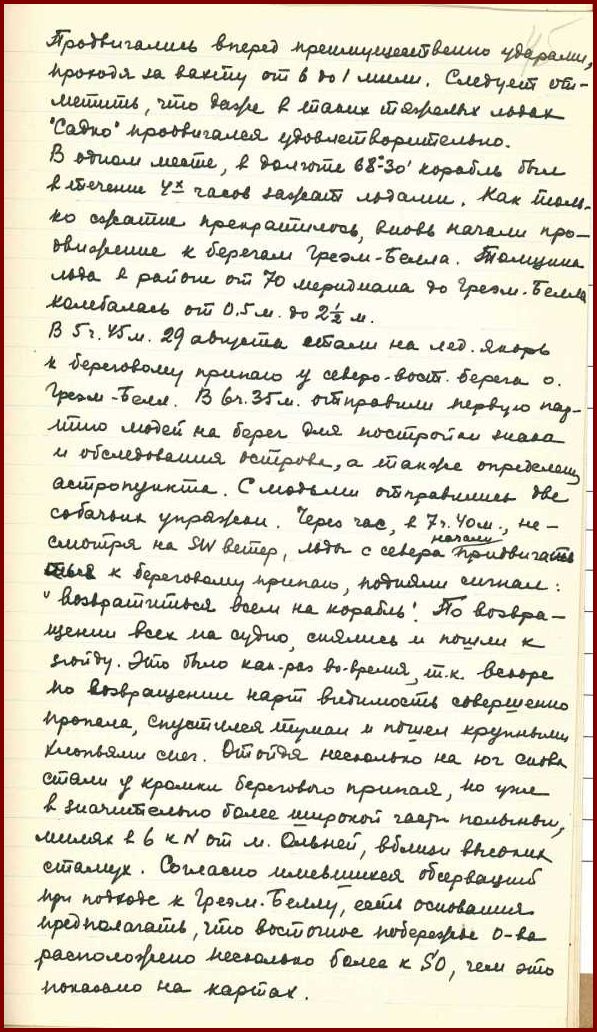 Продвигались вперед преимущественно ударами,
проходя за вахту от 6 до 1 мили. Следует от-
метить, что даже в таких тяжелых льдах
"Садко" продвигался удовлетворительно.
В одном месте, в долготе 68°-30' корабль был
в течение 4х часов зажат льдами. Как толь-
ко сжатие прекратилось, вновь начали про-
движение к берегам Греэм-Белла. Толщина
льда в районе от 70 меридиана до Греэм-Белла
колебалась от 0.5 м. до 2½ м.
В 5 г. 45 м. 29 августа стали на лед. якорь
к береговому припаю у северо-вост. берега о.
Греэм-Белл. В 6 ч. 35 м. отправили первую пар-
тию людей на берег для постройки знака
и обследования острова, а также определения
астропункта. С людьми отправились две
собачьих упряжки. Через час, в 7 г. 40 м., не-
смотря на SW ветер, льды с севера начали придвигать
ться к береговому припаю, подняли сигнал:
"возвратиться всем на корабль". По возвра-
щении всех на судно, снялись и пошли к
зюйду. Это было как-раз во-время, т.к. вскоре
по возвращении нарт видимость совершенно
пропала, спустился туман и пошел крупными
хлопьями снег. Отойдя несколько на юг снова
стали у кромки берегового припая, но уже
в значительно более широкой части полыньи,
милях в 6 к N от м. Ольней, вблизи высоких
стамух. Согласно имевшихся обсерваций
при подходе к Греэм-Беллу, есть основания
предполагать, что восточное побережье о-ва
расположено несколько более к SO, чем это
показано на картах.